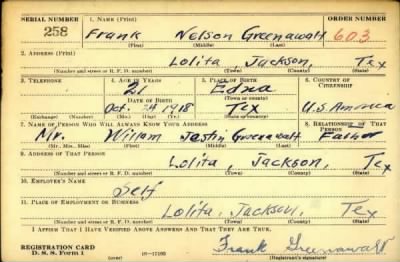 SERIAL NUMBER 1. NAME (Print) ORDER NUMBER
258 Frank Nelson Greenawalt 603
(First) (Middle) (Last)
2. ADDRESS (Print)
Lolita, Jackson, Tex
(Number and street or R. F. D. number) (Town) (County) (State)
3. TELEPHONE 4. AGE IN YEARS 5. PLACE OF BIRTH 6. COUNTRY OF CITIZENSHIP
21 Edna
DATE OF BIRTH (Town or county)
Oct. 1918 Tex U.S. America
(Exchange) (Number) (Mo.) (Day) (Yr.) (State or country)
7. NAME OF PERSON WHO WILL ALWAYS KNOW YOUR ADDRESS 8. RELATIONSHIP OF THAT PERSON
Mr. Greenawalt Father
(Mr., Mrs., Miss) (First) (Middle) (Last)
9. ADDRESS OF THAT PERSON
Lolita, Jackson, Tex
(Number and street or R. F. D. number) (Town) (County) (State)
10. EMPLOYER'S NAME
Self
11. PLACE OF EMPLOYMENT OR BUSINESS
Lolita, Jackson, Tex
(Number and street or R. F. D. number) (Town) (County) (State)
I AFFIRM THAT I HAVE VERIFIED ABOVE ANSWERS AND THAT THEY ARE TRUE.
REGISTRATION CARD
D. S. S. Form 1 Frank Greenawalt
(Registrant's signature)